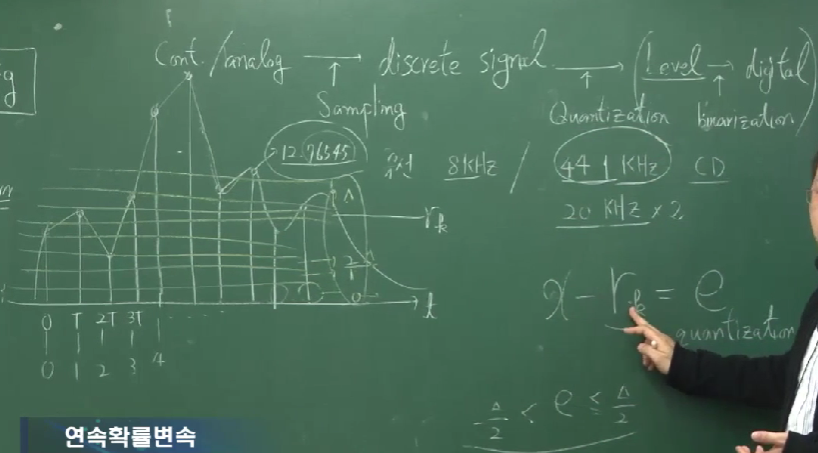 Cont./analog → discrete signal → (Level → digital)
Sampling
Quantization
binarization
12.76545
음성 8KHz / 44.1 KHz CD
20 KHz × 2
r_k
t
x - r_k = e
quantization
-Δ/2 < e ≤ Δ/2
0 T 2T 3T
0 1 2 3 4
연속확률변속